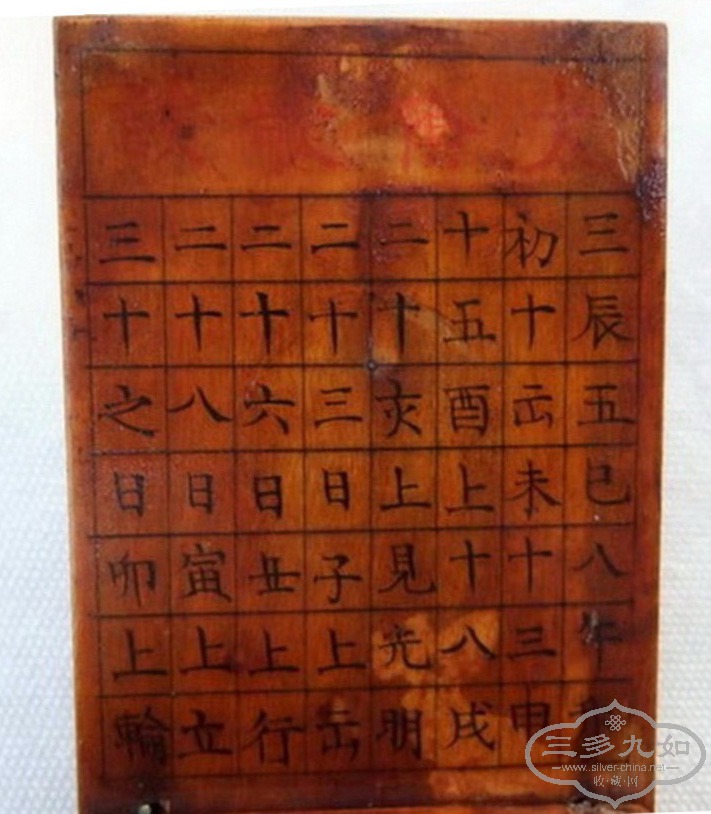 三辰五巳八午
初十出未十三申
十五酉上十八戌
二十亥上見光明
二十三日子上出
二十六日丑上行
二十八日寅上立
三十之日卯上輪
三多九如
www.silver-china.net
收·藏·网